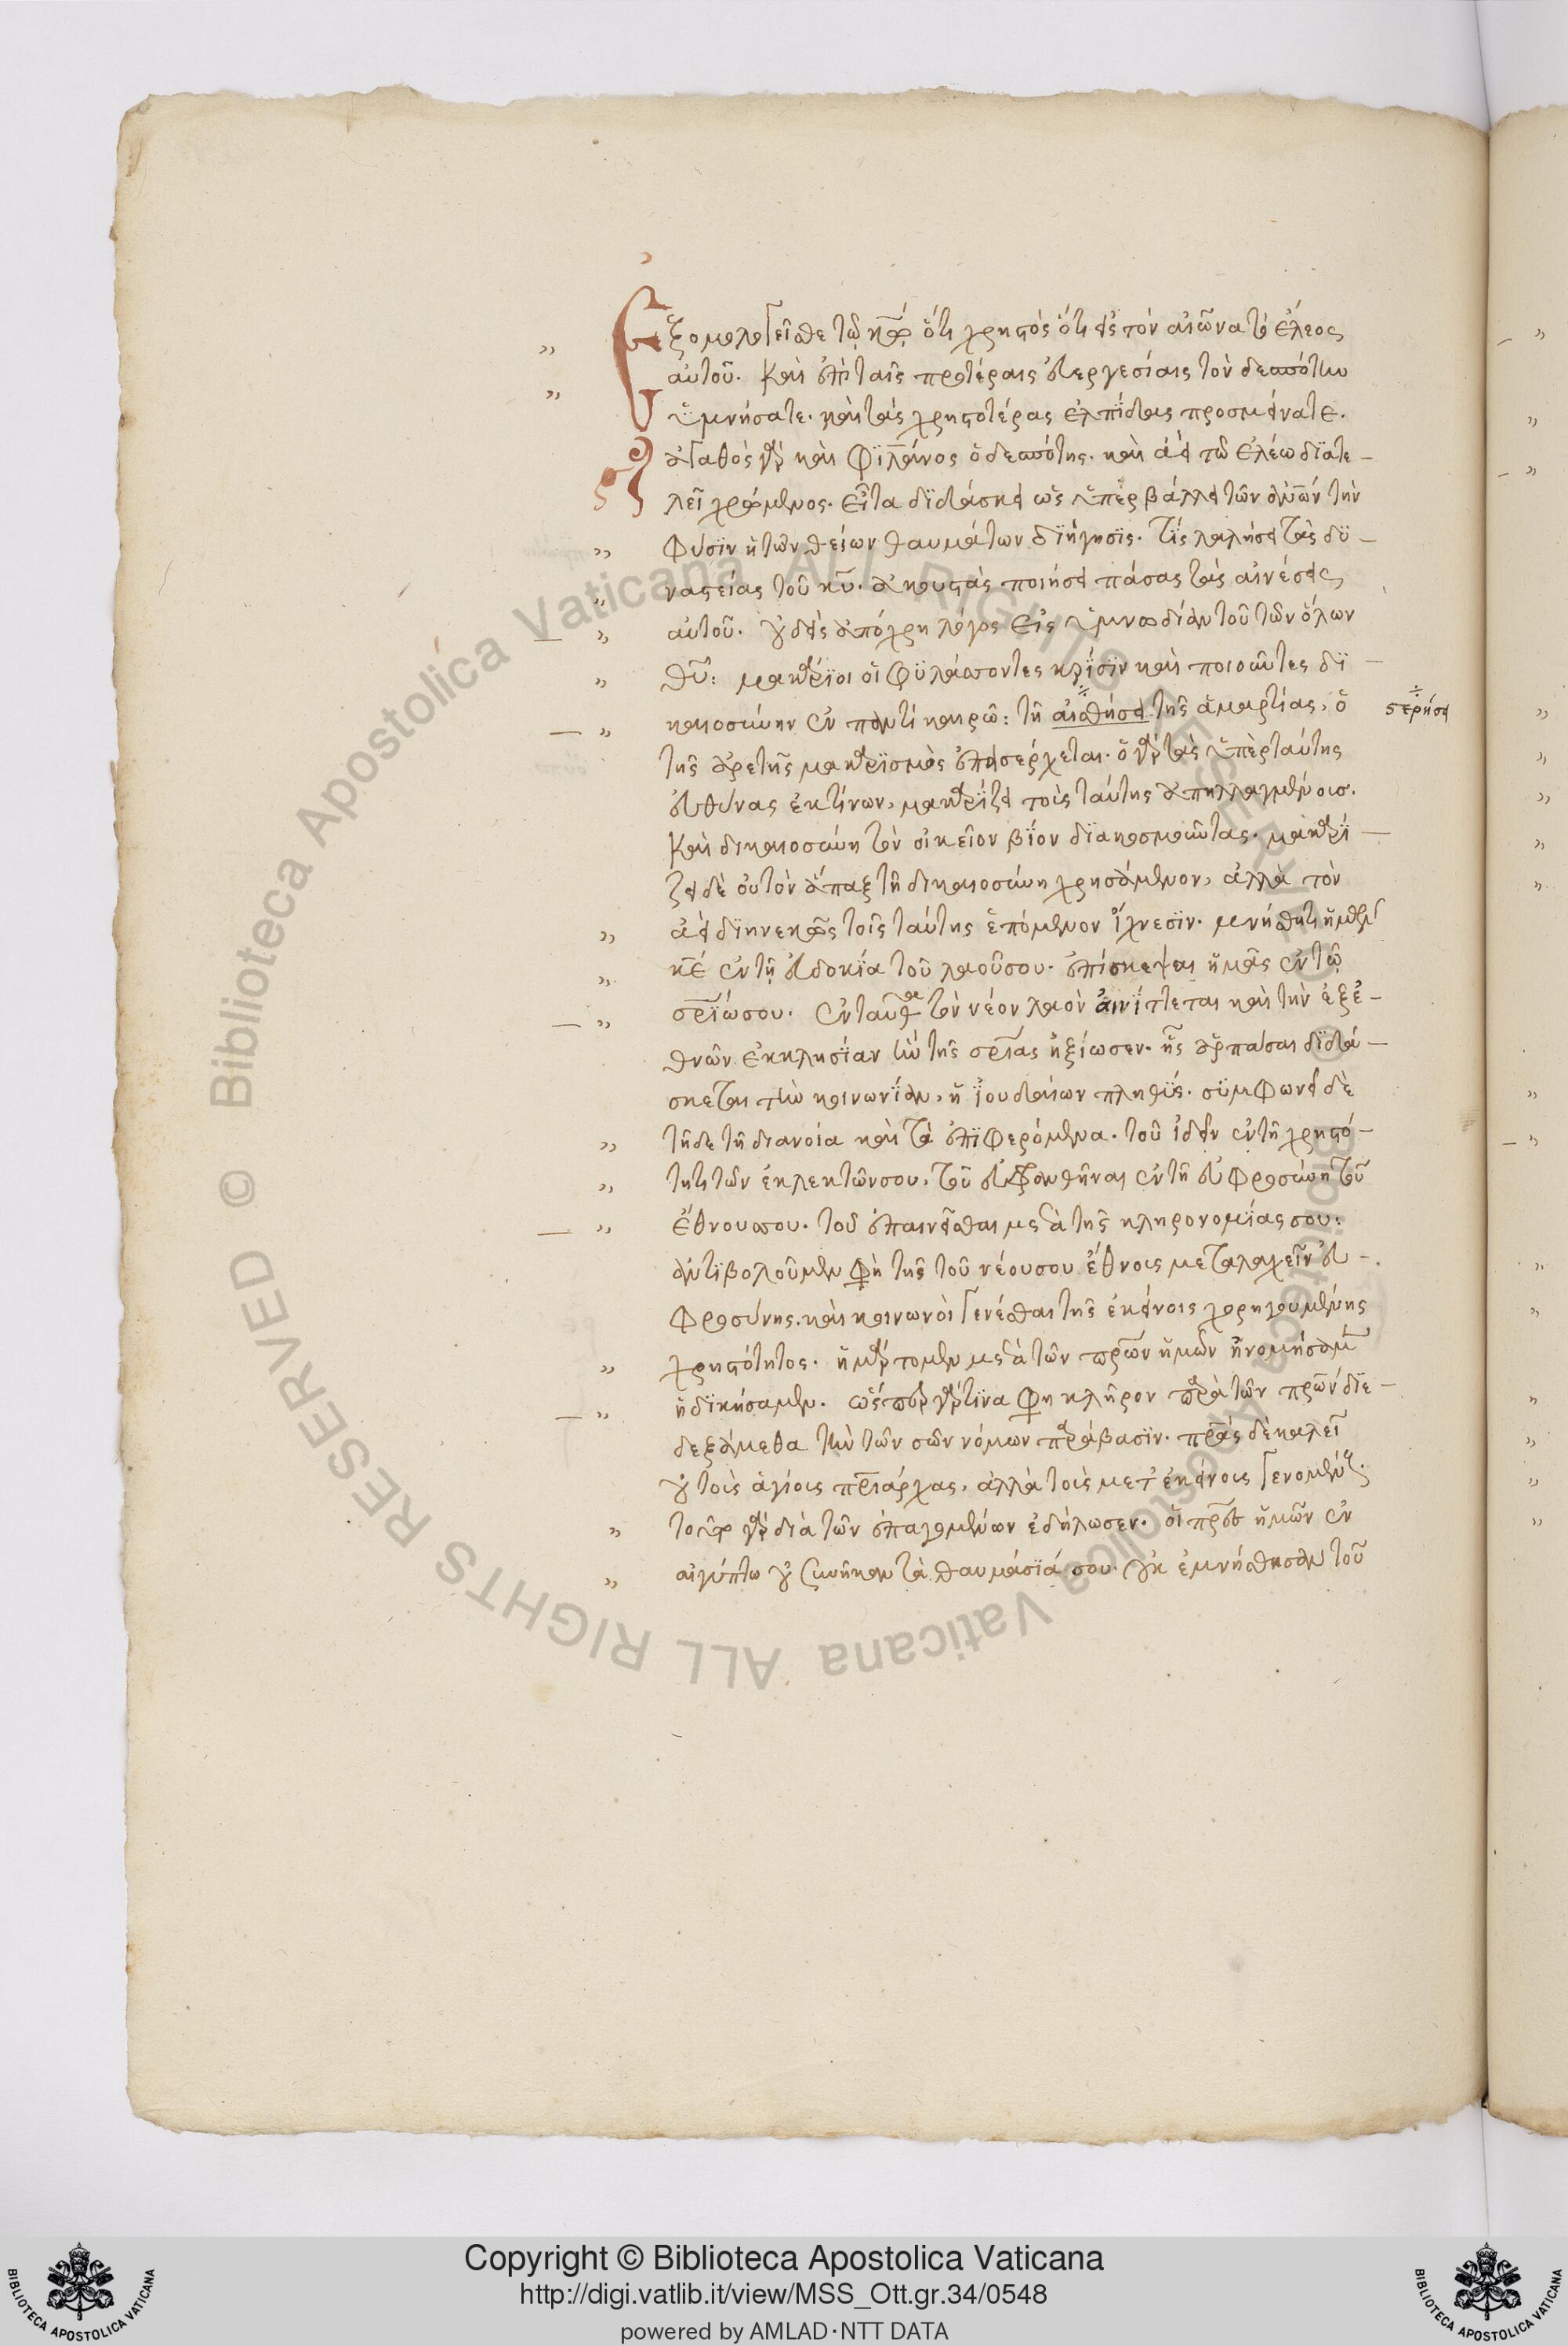 Ἐξομολογεῖσθε τῷ κῷ ὅτι χρηστὸς ὅτι εἰς τὸν αἰῶνα τὸ ἔλεος
αὐτοῦ. Καὶ ἐπὶ ταῖς προτέραις εὐεργεσίαις τὸν δεσπότην
ὑμνήσατε. καὶ τὰς χρηστοτέρας ἐλπίδας προσμείνατε.
ἀγαθὸς γὰρ καὶ φιλάνος ὁ δεσπότης. καὶ ἀεὶ τῷ ἐλέω διατε-
λεῖ χρώμενος. εἶτα διδάσκει ὡς ὑπερβάλλει τῶν ἀνῶν τὴν
φύσιν ἡ τῶν θείων θαυμάτων διήγησις. τίς λαλήσει τὰς δυ-
ναστείας τοῦ κυ. ἀκουστὰς ποιήσει πάσας τὰς αἰνέσεις
αὐτοῦ. οὐδεὶς ἀπόχρη λόγος εἰς ὑμνωδίαν τοῦ τῶν ὅλων
θυ: μακάριοι οἱ φυλάσσοντες κρίσιν καὶ ποιοῦντες δι-
καιοσύνην ἐν παντὶ καιρῶ: τῆ αἰσθήσει τῆς ἁμαρτίας, ὁ
στερήσει
τῆς ἀρετῆς μακαρισμὸς ἐπεισέρχεται. ὁ γὰρ τὰς ὑπὲρ ταύτης
εὐθύνας ἐκτίνων, μακαρίζει τοὺς ταύτης ἀπηλλαγμένους.
Καὶ δικαιοσύνη τὸν οἰκεῖον βίον διακοσμοῦντας. μακαρί-
ζει δὲ οὐ τὸν ἅπαξ τῆ δικαιοσύνη χρησάμενον, ἀλλὰ τὸν
ἀεὶ διηνεκῶς τοῖς ταύτης ἑπόμενον ἴχνεσιν. μνήσθητι ἡμῶν
κε ἐν τῆ εὐδοκία τοῦ λαοῦ σου. ἐπίσκεψαι ἡμᾶς ἐν τῷ
σρίω σου. ἐνταῦθα τὸν νέον λαὸν αἰνίττεται καὶ τὴν ἐξ ἐ-
θνῶν ἐκκλησίαν τὴν τῆς σρίας ἠξίωσεν. ἧς ἁρπάσαι διδά-
σκεται τὴν κοινωνίαν, ἡ ἰουδαίων πληθύς. συμφωνεῖ δὲ
τῆδε τῆ διανοία καὶ τὰ ἐπιφερόμενα. τοῦ ἰδεῖν ἐν τῆ χρηστό-
τητι τῶν ἐκλεκτῶν σου, τοῦ εὐφρανθῆναι ἐν τῆ εὐφροσύνη τοῦ
ἔθνους σου. τοῦ ἐπαινεῖσθαι μετὰ τῆς κληρονομίας σου:
ἀντιβολοῦμεν φησὶ τῆς τοῦ νέου σου ἔθνους μεταλαχεῖν εὐ-
φροσύνης. καὶ κοινωνοὶ γενέσθαι τῆς ἐκείνοις χορηγουμένης
χρηστότητος. ἡμάρτομεν μετὰ τῶν πρων ἡμῶν ἠνομήσαμεν
ἠδικήσαμεν. ὥσπερ γάρ τινα φησὶ κλῆρον παρὰ τῶν πρων διε-
δεξάμεθα τὴν τῶν σῶν νόμων παράβασιν. πρας δὲ καλεῖ
οὐ τοὺς ἁγίους πριάρχας, ἀλλὰ τοὺς μετ' ἐκείνους γενομένους.
τοῦτο γὰρ διὰ τῶν ἐπαγομένων ἐδήλωσεν. οἱ πρες ἡμῶν ἐν
αἰγύπτω οὐ συνῆκαν τὰ θαυμάσιά σου. οὐκ ἐμνήσθησαν τοῦ
Copyright © Biblioteca Apostolica Vaticana
http://digi.vatlib.it/view/MSS_Ott.gr.34/0548
powered by AMLAD·NTT DATA
BIBLIOTECA APOSTOLICA VATICANA
BIBLIOTECA APOSTOLICA VATICANA
© Biblioteca Apostolica Vaticana ALL RIGHTS RESERVED © Biblioteca Apostolica Vaticana ALL RIGHTS RESERVED